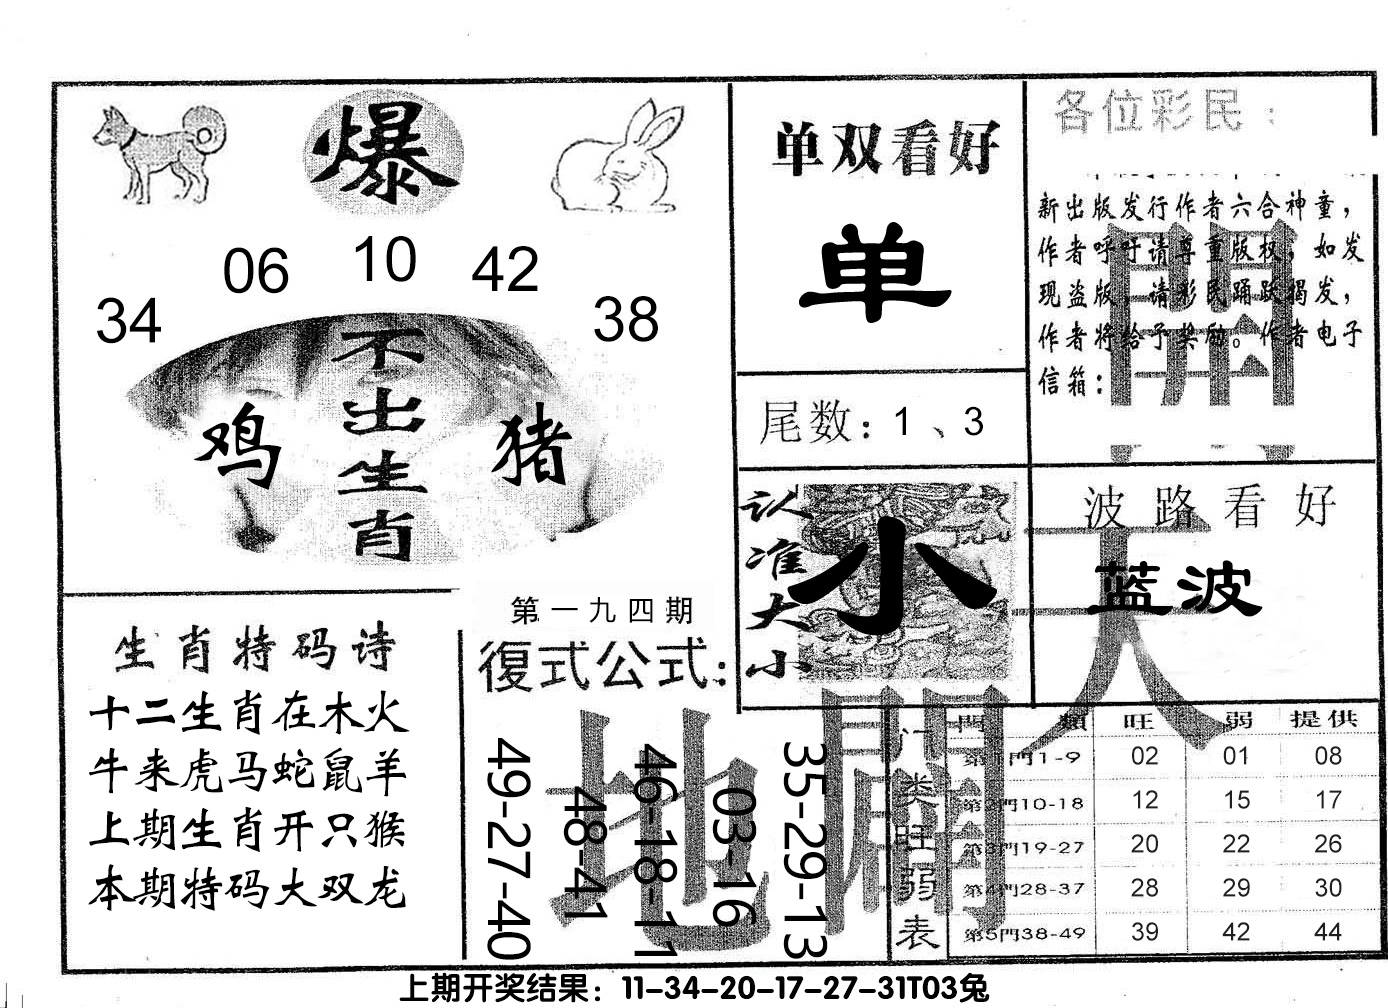 爆
34 06 10 42 38
不出生肖
鸡
猪
单双看好
单
尾数：1、3
各位彩民：
新出版发行作者六合神童，
作者呼吁请尊重版权，如发
现盗版，请彩民踊跃揭发，
作者将给予奖励。作者电子
信箱：
認准大小
小
波路看好
蓝波
生肖特码诗
十二生肖在木火
牛来虎马蛇鼠羊
上期生肖开只猴
本期特码大双龙
第一九四期
復式公式：
49-27-40
48-41
46-18-11
03-16
35-29-13
天
地
開
闢
门类旺弱表
門類 旺 弱 提供
第1門1-9 02 01 08
第2門10-18 12 15 17
第3門19-27 20 22 26
第4門28-37 28 29 30
第5門38-49 39 42 44
上期开奖结果：11-34-20-17-27-31T03兔